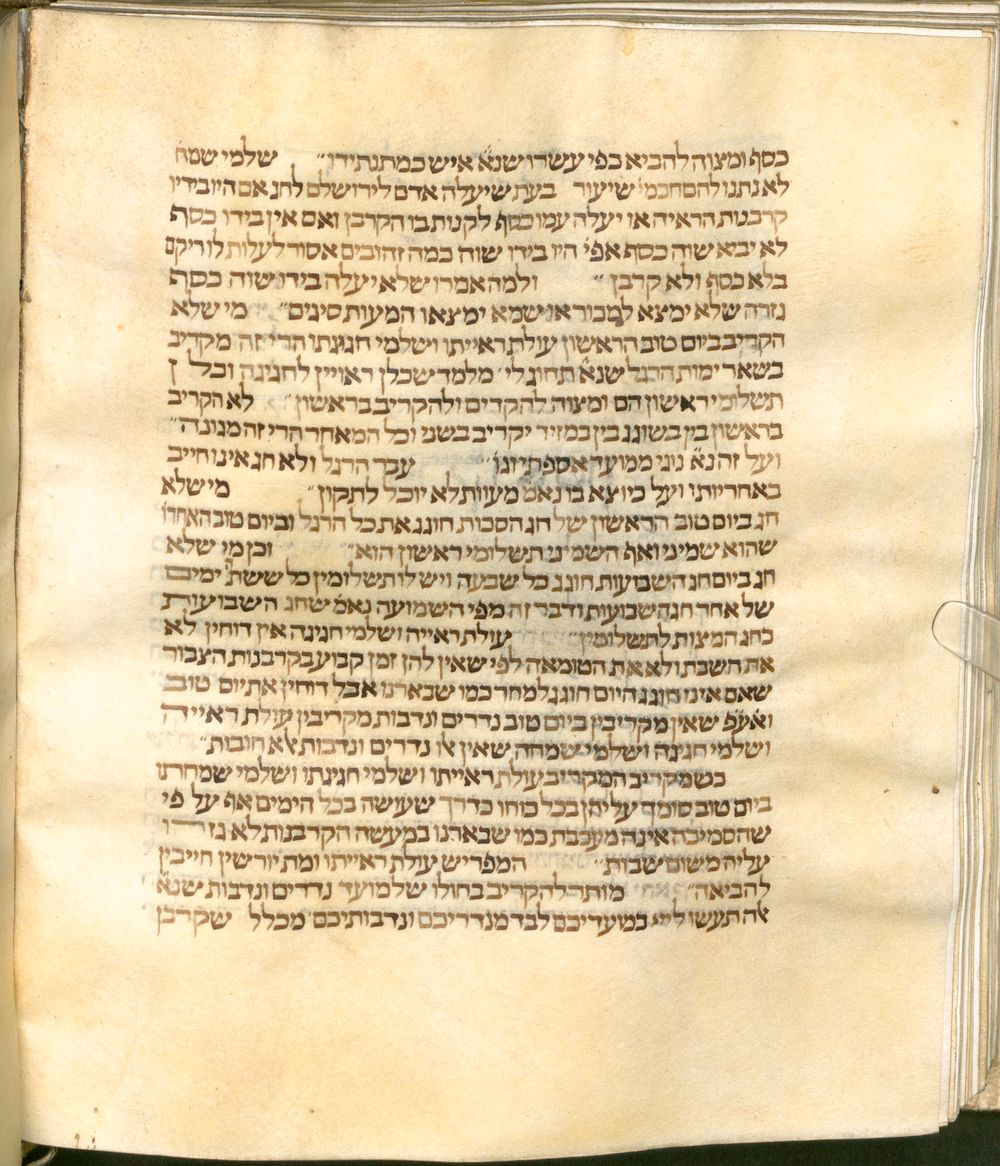 כסף ומצוה להביא כפי עשרו שנא' איש כמתנת ידו״ שלמי שמח
לא נתנו להם חכמי' שיעור בעת שיעלה אדם לירושלם לחג אם היו בידיו
קרבנות הראיה או יעלה עמו כסף לקנות בו הקרבן ואם אין בידו כסף
לא יביא שוה כסף אפי' היו בידו שוה כמה זהובים אסור לעלות לו ריקם
בלא כסף ולא קרבן״ ולמה אמרו שלא יעלה בידו שוה כסף
גזרה שלא ימצא למכור או שמא ימצאו המעות סיגים״ מי שלא
הקריב ביום טוב הראשון עולת ראייתו ושלמי חגיגתו הרי זה מקריב
בשאר ימות הרגל שנא' תחוג לי' מלמד שכלן ראויין לחגיגה וכל ן
תשלומי ראשון הם ומצוה להקדים ולהקריב בראשון״ לא הקריב
בראשון בין בשוגג בין במזיד יקריב בשני וכל המאחר הרי זה מגונה״
ועל זה נא' נוגי ממועד אספתי וגו'״ עבר הרגל ולא חג אינו חייב
באחריותו ועל כיוצא בו נאמ' מעוות לא יוכל לתקון״ מי שלא
חג ביום טוב הראשון של חג הסכות חוגג את כל הרגל וביום טוב האחרו
שהוא שמיני ואף השמיני תשלומי ראשון הוא״ וכן מי שלא
חג ביום חג השבועות חוגג כל שבעה ויש לו תשלומין כל ששת ימים
של אחר חג השבועות ודבר זה מפי השמועה נאמ' שחג השבועות
כחג המצות לתשלומין״ עולת ראייה ושלמי חגיגה אין דוחין לא
את השבת ולא את הטומאה לפי שאין להן זמן קבוע כקרבנות הצבור
שאם אינו חוגג היום חוגג למחר כמו שבארנו אבל דוחין את יום טוב
ואע'פ שאין מקריבין ביום טוב נדרים ונדבות מקריבין עולת ראייה
ושלמי חגיגה ושלמי שמחה שאין אלו נדרים ונדבות אלא חובות״
כשמקריב המקריב עולת ראייתו ושלמי חגיגתו ושלמי שמחתו
ביום טוב סומך עליהן בכל כוחו כדרך שעושה בכל הימים אף על פי
שהסמיכה אינה מעכבת כמו שבארנו במעשה הקרבנות לא גזרו
עליה משום שבות״ המפריש עולת ראייתו ומת יורשין חייבין
להביאה״ מותר להקריב בחולו שלמועד נדרים ונדבות שנא'
אלה תעשו ליי' במועדיכם לבד מנדריכם ונדבותיכם מכלל שקרבן